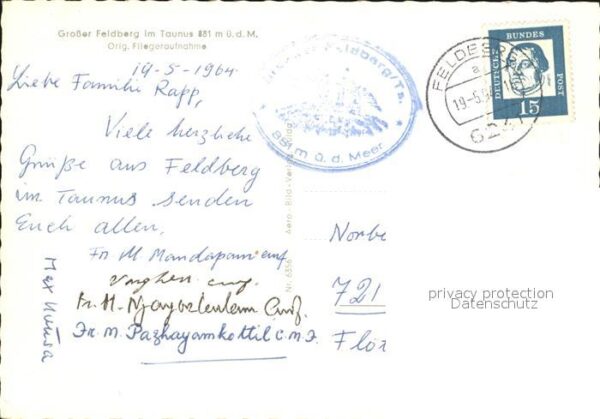 Großer Feldberg im Taunus 881 m ü. d. M.
Orig. Fliegeraufnahme
19-5-1964
Liebe Familie Rapp,
Viele herzliche
Grüße aus Feldberg
im Taunus senden
Euch allen.
Fr M Mandapam cmf
Fr. H. cmf
Fr. M. Pazhayamkottil C.M.F.
Max
Feldberg/Ts.
881 m ü. d. Meer
Nr. 6356
Aero-Bild-Verlag
19-5
DEUTSCHE
BUNDES
POST
15
Norbe
721
Flör
privacy protection
Datenschutz